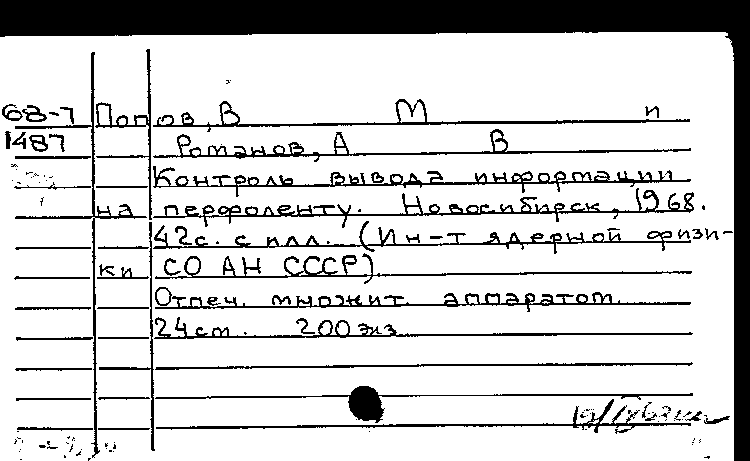 68-7 Попов, В М и
1487 Романов, А В
Контроль вывода информации
на перфоленту. Новосибирск, 1968.
42с. с илл. (Ин-т ядерной физи-
ки СО АН СССР)
Отпеч. множит. аппаратом.
24см. 200 экз